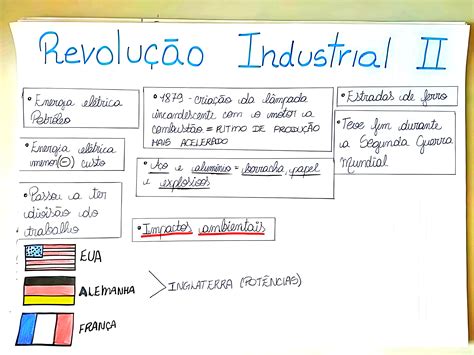 Revolução Industrial II
• Energia elétrica
Petróleo
• Energia elétrica
menor (-) custo
• Passou a ter
divisão do
trabalho
• 1879 - criação da lâmpada
incandescente com o motor a
combustão = RITMO DE PRODUÇÃO
MAIS ACELERADO
• Aço e alumínio = borracha, papel
e explosivos
• Impactos ambientais
• Estradas de ferro
• Teve fim durante
a Segunda Guerra
Mundial
EUA
ALEMANHA
FRANÇA
INGLATERRA (POTÊNCIAS)